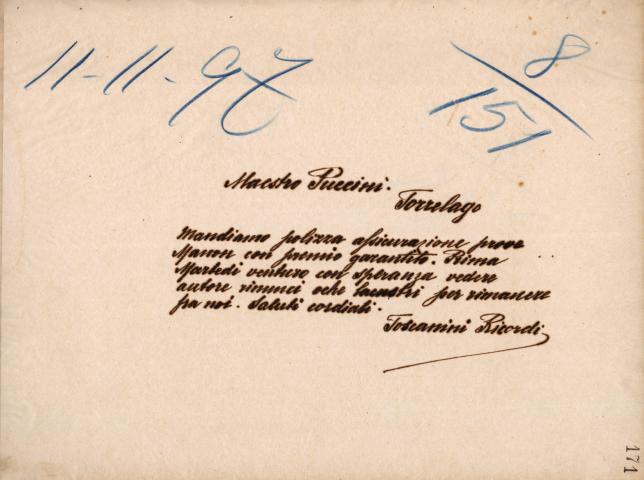 11-11-97
8
151
Maestro Puccini.
Torrelago
Mandiamo polizza assicurazione prove
Manon con premio garantito. Prima
Martedì venturo con speranza vedere
autore rinunci oche lacustri per rimanere
fra noi. Saluti cordiali.
Toscanini Ricordi
171